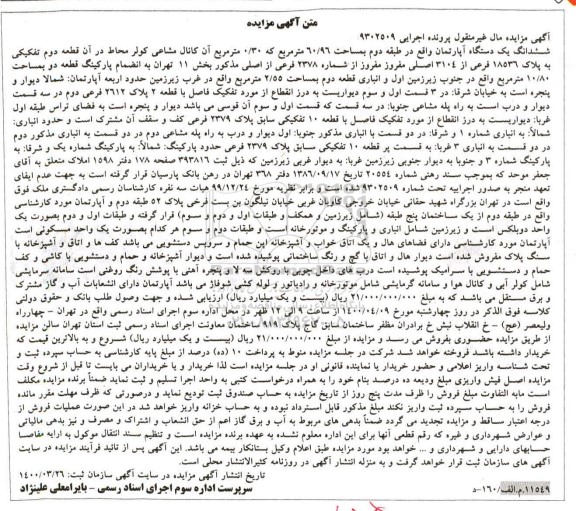 متن آگهی مزایده
آگهی مزایده مال غیرمنقول پرونده اجرایی ۹۳۰۲۵۰۹
ششدانگ یک دستگاه آپارتمان واقع در طبقه دوم بمساحت ۶۰/۹۶ مترمربع که ۰/۳۰ مترمربع آن کانال مشاعی کولر محاط در آن قطعه دوم تفکیکی
به پلاک ۱۸۵۳۶ فرعی از ۳۱۰۴ اصلی مفروز مفروز از شماره ۲۳۷۸ فرعی از اصلی مذکور بخش ۱۱ تهران به انضمام پارکینگ قطعه دو بمساحت
۱۰/۸۰ مترمربع واقع در جنوب زیرزمین اول و انباری قطعه دوم بمساحت ۲/۵۵ مترمربع واقع در غرب زیرزمین حدود اربعه آپارتمان: شمالا دیوار و
پنجره است به خیابان شرقا: در ۳ قسمت اول و سوم دیواریست به درز انقطاع از مورد تفکیک فاصل با قطعه ۲ پلاک ۲۶۱۲ فرعی دوم در سه قسمت
دیوار و درب است به راه پله مشاعی جنوبا: در سه قسمت که قسمت اول و سوم آن قوسی می باشد دیوار و پنجره است به فضای تراس طبقه اول
غربا: دیواریست به درز انقطاع از مورد تفکیک فاصل با قطعه ۱۰ تفکیکی سابق پلاک ۲۳۷۹ فرعی کف و سقف آن مشترک است و حدود انباری:
شمالاً: به انباری شماره ۱ و شرقا: در دو قسمت با انباری مذکور جنوبا: اول دیوار و درب به راه پله مشاعی دوم در دو قسمت به انباری مذکور دوم
در دو قسمت به انباری ۳ غربا: به قسمت پر قطعه ۱۰ تفکیکی سابق پلاک ۲۳۷۹ فرعی حدود پارکینگ: شمالاً: به پارکینگ شماره یک و شرقا: به
پارکینگ شماره ۳ و جنوبا به دیوار جنوبی زیرزمین غربا: به دیوار غربی زیرزمین که ذیل ثبت ۳۹۳۸۱۶ صفحه ۱۷۸ دفتر ۱۵۹۸ املاک متعلق به آقای
جعفر موحد که بموجب سند رهنی شماره ۲۰۵۵۴ تاریخ ۱۳۸۶/۰۹/۱۷ دفتر ۳۶۸ تهران در رهن بانک پارسیان قرار گرفته است به جهت عدم ایفای
تعهد منجر به صدور اجراییه تحت شماره ۹۳۰۲۵۰۹ شده است برابر نظریه مورخ ۹۹/۱۲/۲۴ هیات سه نفره کارشناسان رسمی دادگستری ملک فوق
واقع است در تهران بزرگراه شهید حقانی خیابان خروجی گاویان غربی خیابان نیلگون بن بست فرخی پلاک ۵۲ طبقه دوم و آپارتمان مورد کارشناسی
واقع در طبقه دوم از یک ساختمان پنج طبقه (شامل زیرزمین و همکف و طبقات اول و دوم و سوم) قرار گرفته و طبقات اول و دوم بصورت یک
واحد دوبلکس است و زیرزمین شامل انباری و پارکینگ و موتورخانه است و طبقات دوم و سوم هر کدام بصورت یک واحد مسکونی است
آپارتمان مورد کارشناسی دارای فضاهای هال و یک اتاق خواب و آشپزخانه اپن حمام و سرویس دستشویی می باشد کف ها و اتاق و آشپزخانه با
سنگ پلاک مفروش شده است دیوار هال و اتاق با گچ و رنگ ساختمانی پوشیده شده است و دیوار آشپزخانه و حمام و دستشویی با کاشی و کف
حمام و دستشویی با سرامیک پوشیده است درب های داخل چوبی با روکش سه لا و پنجره آهنی با پوشش رنگ روغنی است سامانه سرمایشی
شامل کولر آبی و کانال هوا و سامانه گرمایشی شامل موتورخانه و رادیاتور و لوله کشی شوفاژ می باشد آپارتمان دارای انشعابات آب و گاز مشترک
و برق مستقل می باشد که به مبلغ ۲۱/۰۰۰/۰۰۰/۰۰۰ ریال (بیست و یک میلیارد ریال) ارزیابی شده و جهت وصول طلب بانک و حقوق دولتی
کلاسه فوق الذکر در روز چهارشنبه مورخ ۱۴۰۰/۰۴/۰۹ از ساعت ۹ الی ۱۲ ظهر در محل اداره سوم اجرای اسناد رسمی واقع در تهران - چهارراه
ولیعصر (عج) - خ انقلاب نبش خ برادران مظفر ساختمان سابق گاج پلاک ۹۱۹ ساختمان معاونت اجرای اسناد رسمی ثبت استان تهران سالن مزایده
از طریق مزایده حضوری بفروش می رسد و مزایده از مبلغ ۲۱/۰۰۰/۰۰۰/۰۰۰ ریال (بیست و یک میلیارد ریال) شروع و به بالاترین قیمت که
خریدار داشته باشد فروخته خواهد شد شرکت در جلسه مزایده منوط به پرداخت ۱۰ (ده) درصد از مبلغ پایه کارشناسی به حساب سپرده ثبت و
تحت شناسه واریز اعلامی و حضور خریدار یا نماینده قانونی او در جلسه مزایده است لذا خریدار و یا خریداران می بایست تا قبل از شروع وقت
مزایده اصل فیش واریزی مبلغ ودیعه ده درصد بنام خود را به همراه درخواست کتبی به واحد اجرا تسلیم و ثبت نماید ضمناً برنده مزایده مکلف
است مابه التفاوت مبلغ فروش را ظرف مدت پنج روز از تاریخ مزایده به حساب صندوق ثبت تودیع نماید و درصورتی که ظرف مهلت مقرر مانده
فروش را به حساب سپرده ثبت واریز نکند مبلغ مذکور قابل استرداد نبوده و به حساب خزانه واریز خواهد شد در این صورت عملیات فروش از
درجه اعتبار ساقط و مزایده تجدید می گردد ضمناً بدهی های مربوط به آب و برق گاز اعم از حق انشعاب و اشتراک و مصرف و نیز بدهی مالیاتی
و عوارض شهرداری و غیره که رقم قطعی آنها برای این اداره معلوم نشده به عهده برنده مزایده است و تنظیم سند انتقال موکول به ارایه مفاصا
حسابهای دارایی و شهرداری و ... خواهد بود مورد مزایده طبق اعلام وکیل بستانکار بیمه می باشد. این آگهی پس از تائید فرآیند مزایده در سایت
آگهی های سازمان ثبت قرار خواهد گرفت و به منزله انتشار آگهی در روزنامه کثیرالانتشار محلی است.
تاریخ انتشار آگهی مزایده در سایت آگهی سازمان ثبت: ۱۴۰۰/۰۳/۲۶
سرپرست اداره سوم اجرای اسناد رسمی - بایرامعلی علینژاد
۱۱۵۴۹/م.الف/۱۶۰-د